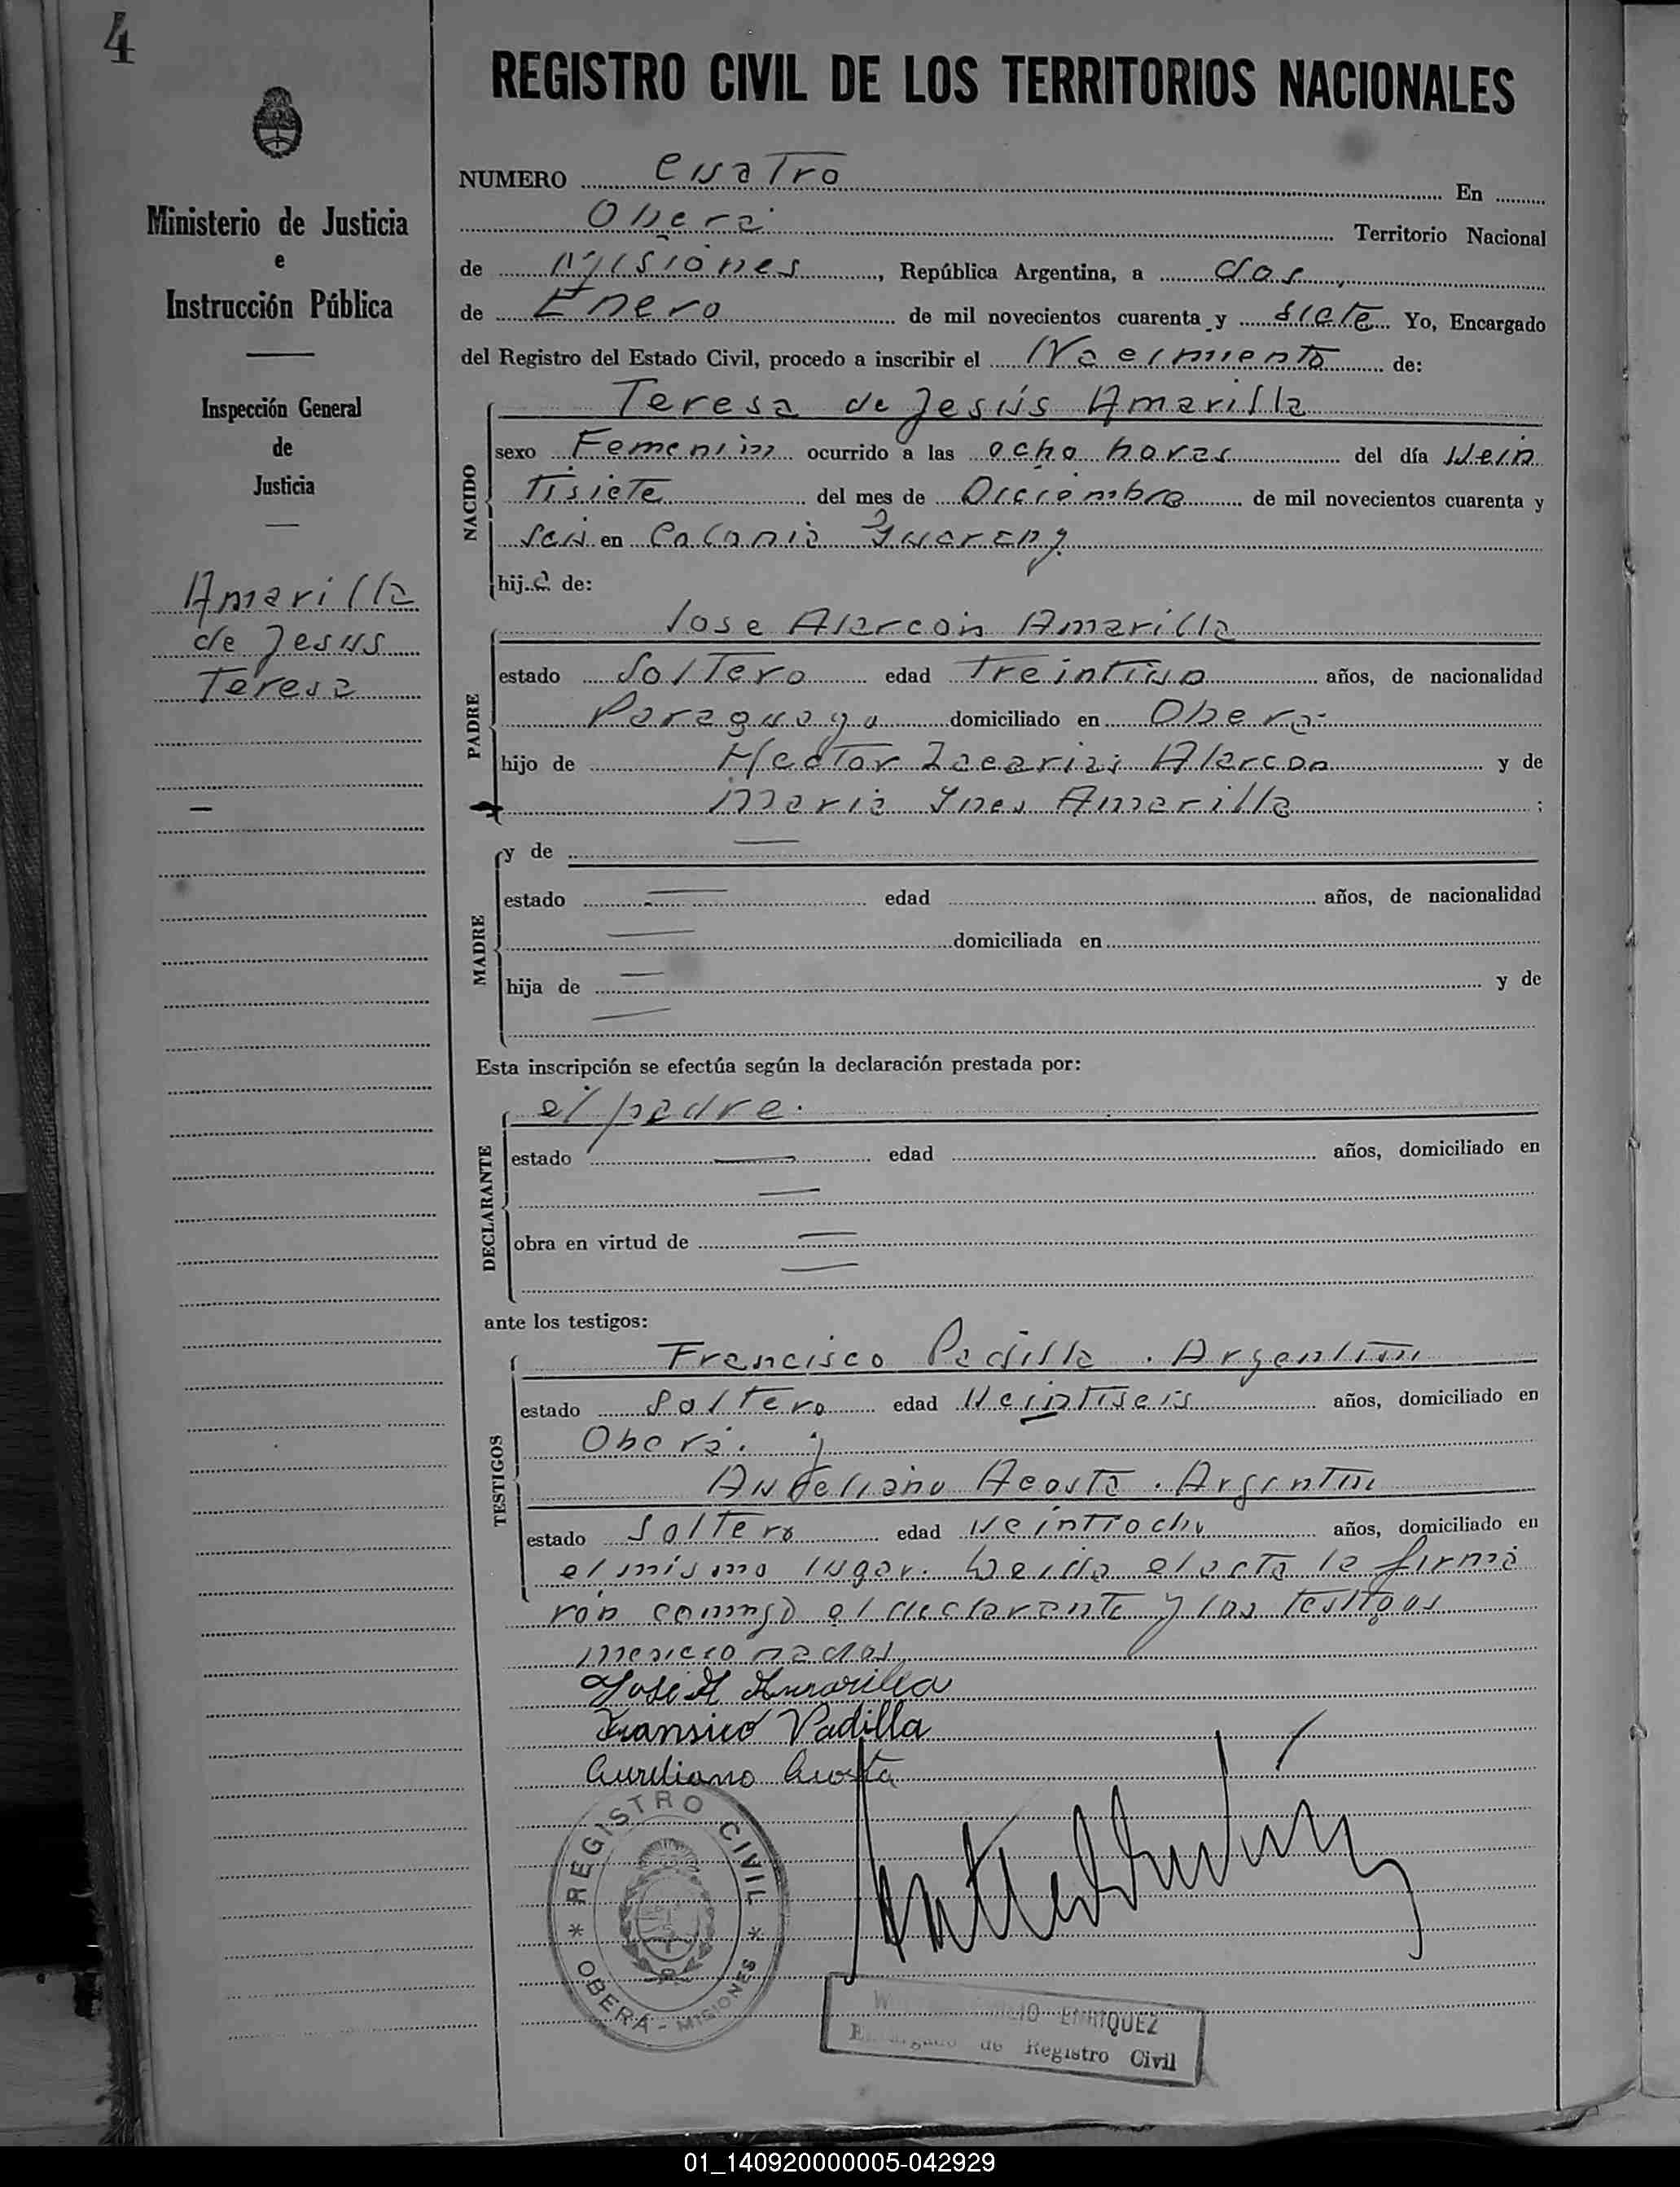 4
REGISTRO CIVIL DE LOS TERRITORIOS NACIONALES
Ministerio de Justicia
e
Instrucción Pública
Inspección General
de
Justicia
Amarilla
de Jesus
Teresa
NUMERO Cuatro En
Oberá Territorio Nacional
de Misiones, República Argentina, a dos
de Enero de mil novecientos cuarenta y siete Yo, Encargado
del Registro del Estado Civil, procedo a inscribir el Nacimiento de:
Teresa de Jesús Amarilla
NACIDO
sexo Femenino ocurrido a las ocho horas del día Vein
tisiete del mes de Diciembre de mil novecientos cuarenta y
seis en Colonia Guarany
hija de:
PADRE
Jose Alarcón Amarilla
estado Soltero edad Treintiuno años, de nacionalidad
Paraguaya domiciliado en Oberá
hijo de Hector Zacarias Alarcon y de
Maria Ynes Amarilla ;
MADRE
y de —
estado — edad años, de nacionalidad
— domiciliada en
hija de — y de
—
Esta inscripción se efectúa según la declaración prestada por:
DECLARANTE
el padre.
estado — edad años, domiciliado en
—
obra en virtud de —
—
ante los testigos:
TESTIGOS
Francisco Padilla . Argentino
estado Soltero edad Veintiseis años, domiciliado en
Oberá. y
Aureliano Acosta . Argentino
estado Soltero edad Veintiocho años, domiciliado en
el mismo lugar. Leida el acta la firma
ron conmigo el declarante y los testigos
mencionados
José A Amarilla
Fransico Padilla
Aureliano Acosta
* REGISTRO CIVIL *
OBERÁ - MISIONES
ENRIQUEZ
Encargado de Registro Civil
01_140920000005-042929